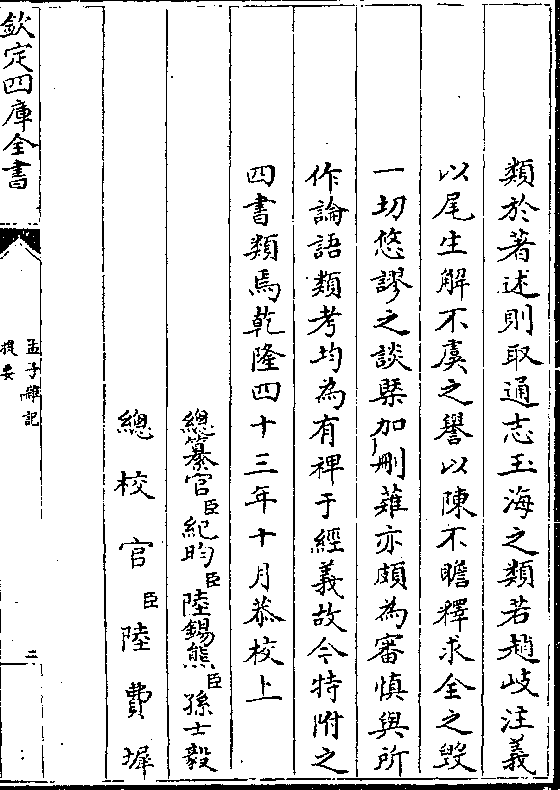 類於著述則取通志玉海之類若趙岐注義
以尾生解不虞之譽以陳不瞻釋求全之毀
一切悠謬之談槩加刪薙亦頗為審慎與所
作論語類考均為有裨于經義故今特附之
四書類焉乾隆四十三年十月恭校上
總纂官臣紀昀臣陸錫熊臣孫士毅
總校官臣陸費墀
欽定四庫全書
孟子雜記
提要
二